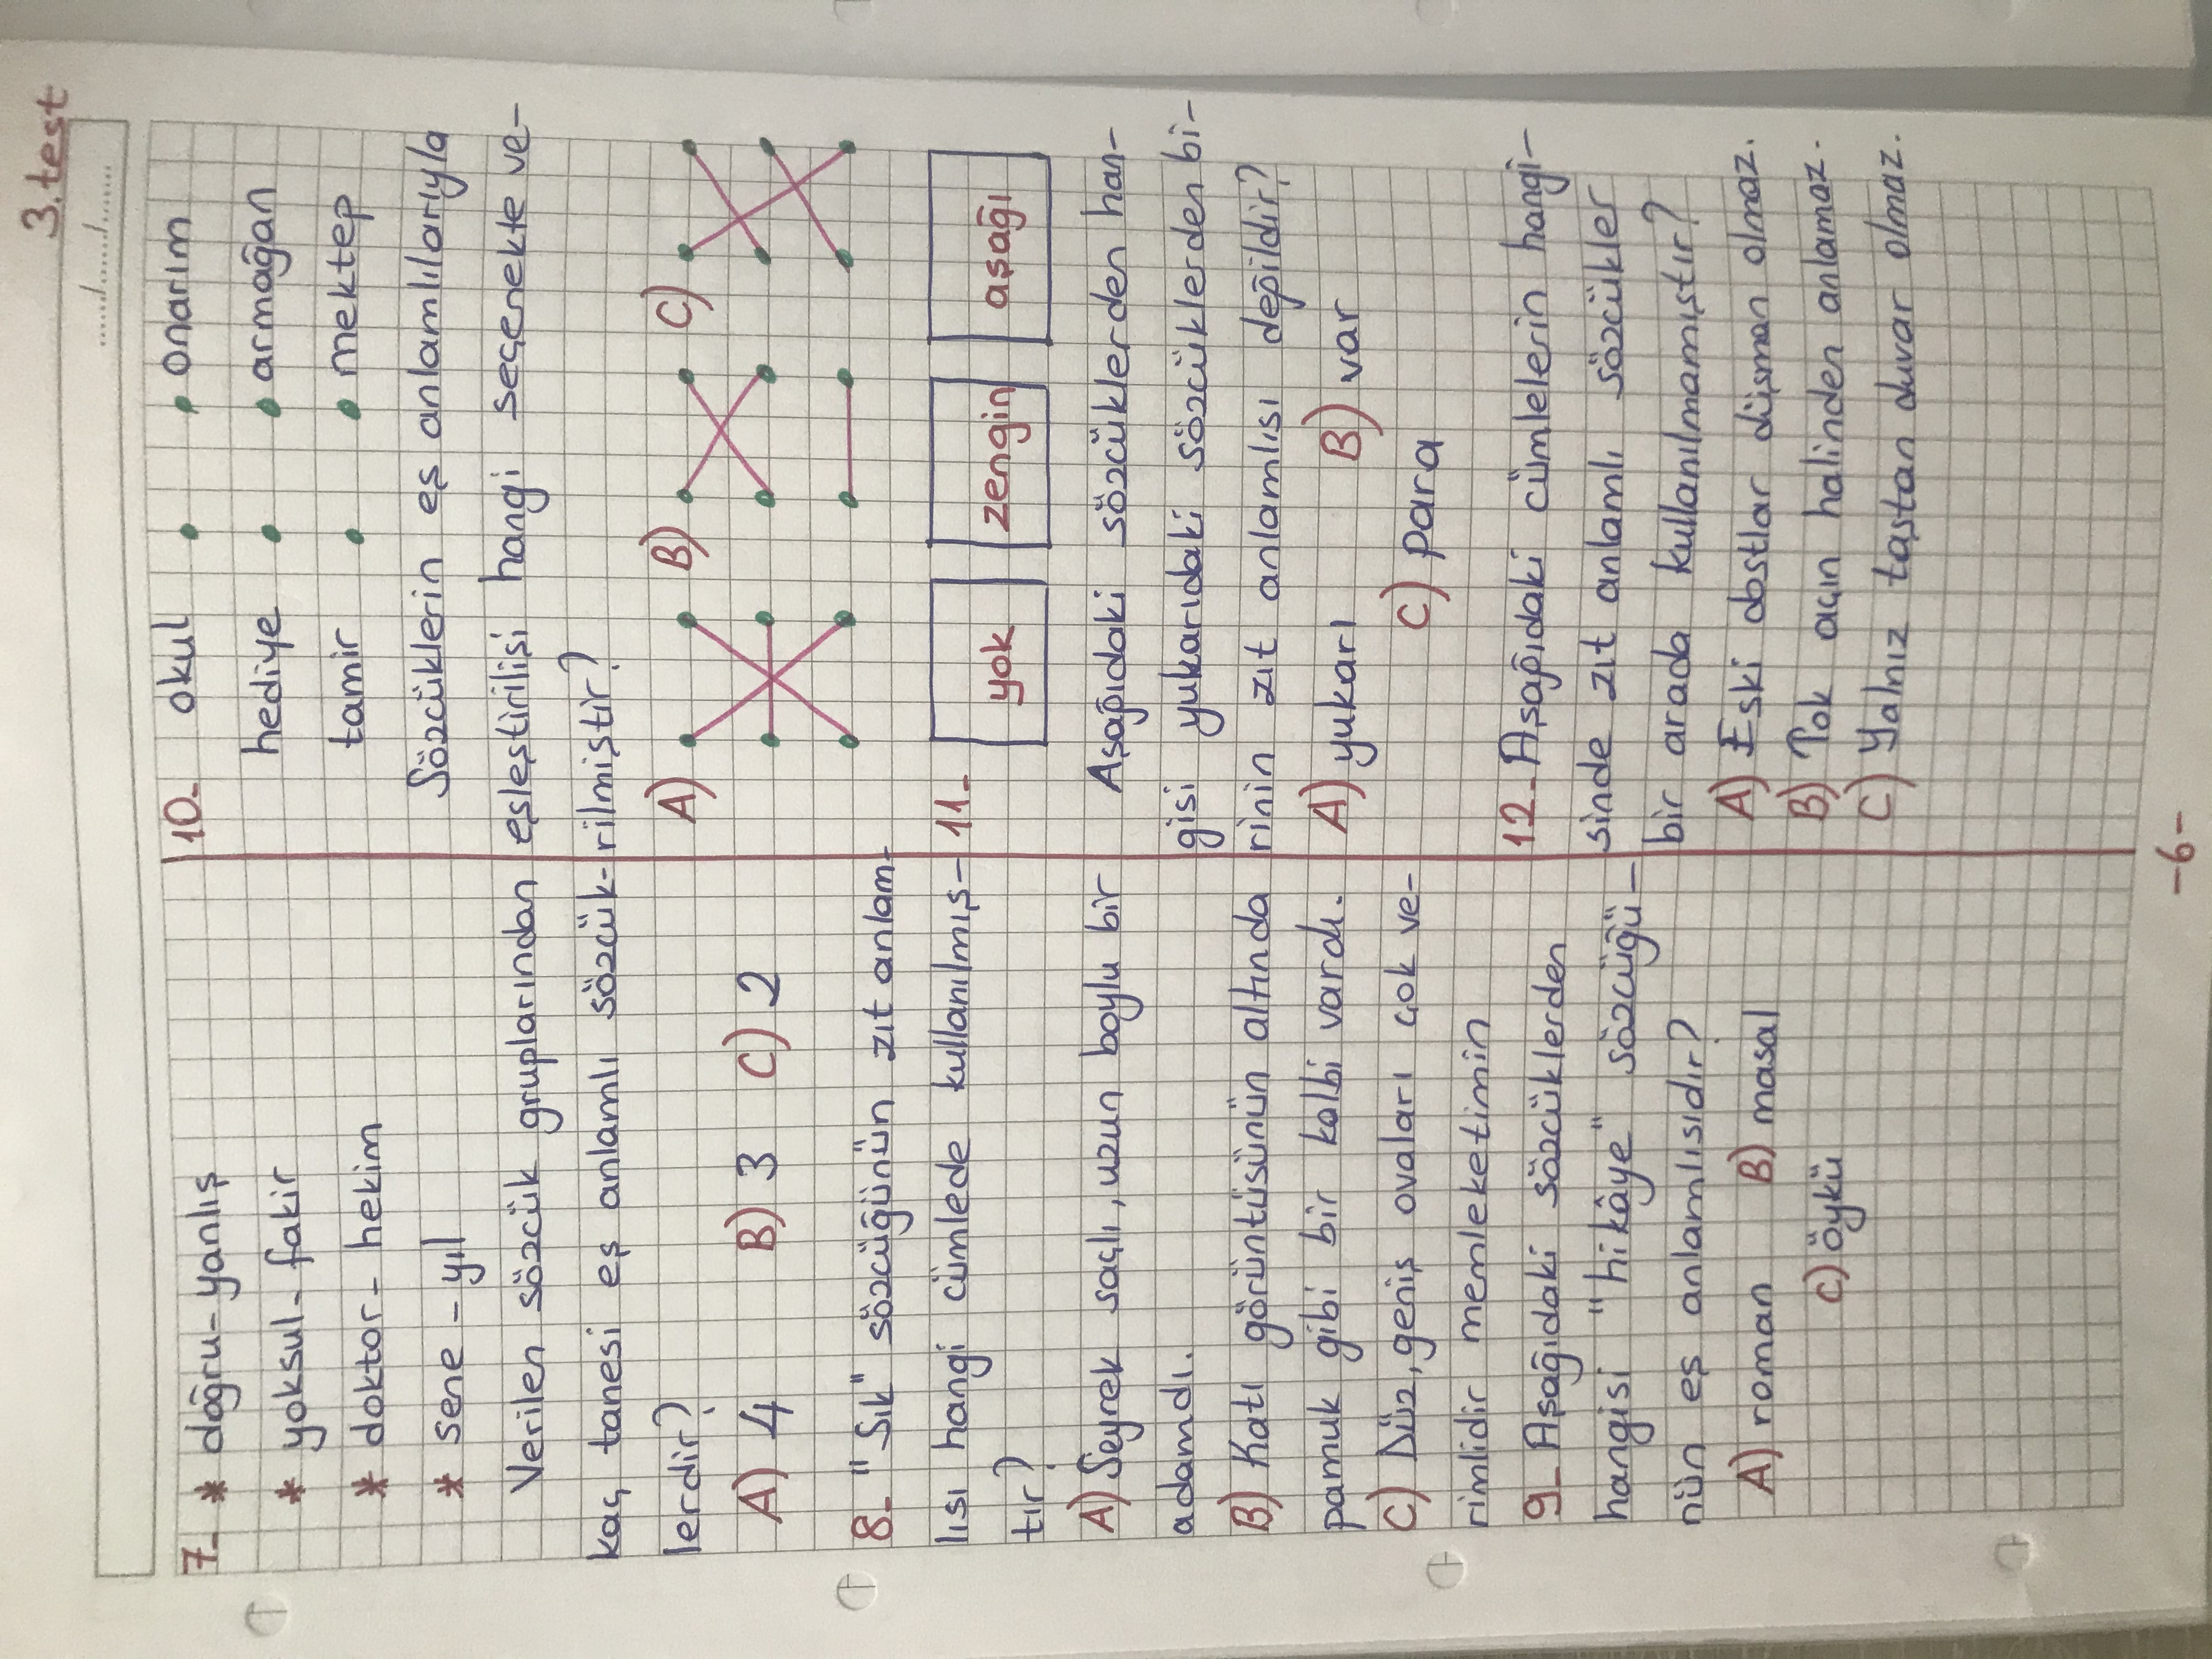 3.test
...../...../.....
7- * doğru-yanlış
* yoksul-fakir
* doktor-hekim
* sene-yıl
Verilen sözcük gruplarından
kaç tanesi eş anlamlı sözcük-
lerdir?
A) 4 B) 3 C) 2
8- "Sık" sözcüğünün zıt anlam-
lısı hangi cümlede kullanılmış-
tır?
A) Seyrek saçlı, uzun boylu bir
adamdı.
B) Katı görüntüsünün altında
pamuk gibi bir kalbi vardı.
C) Düz, geniş ovaları çok ve-
rimlidir memleketimin
9- Aşağıdaki sözcüklerden
hangisi "hikâye" sözcüğü-
nün eş anlamlısıdır?
A) roman B) masal
C) öykü
10- okul • • onarım
hediye • • armağan
tamir • • mektep
Sözcüklerin eş anlamlılarıyla
eşleştirilişi hangi seçenekte ve-
rilmiştir?
A) B) C)
11- yok zengin aşağı
Aşağıdaki sözcüklerden han-
gisi yukarıdaki sözcüklerden bi-
rinin zıt anlamlısı değildir?
A) yukarı B) var
C) para
12- Aşağıdaki cümlelerin hangi-
sinde zıt anlamlı sözcükler
bir arada kullanılmamıştır?
A) Eski dostlar düşman olmaz.
B) Tok açın halinden anlamaz.
C) Yalnız taştan duvar olmaz.
-6-